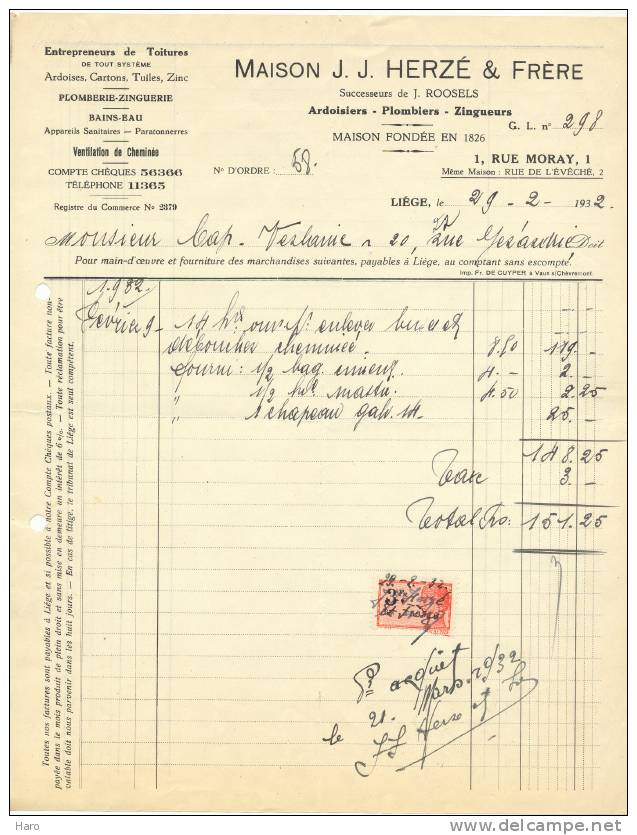 Entrepreneurs de Toitures
DE TOUT SYSTÈME
Ardoises, Cartons, Tuiles, Zinc
PLOMBERIE-ZINGUERIE
BAINS-EAU
Appareils Sanitaires — Paratonnerres
Ventilation de Cheminée
COMPTE CHÈQUES 56366
TÉLÉPHONE 11365
Registre du Commerce No 2379
MAISON J. J. HERZÉ & FRÈRE
Successeurs de J. ROOSELS
Ardoisiers - Plombiers - Zingueurs
G. L. no 298
MAISON FONDÉE EN 1826
No D'ORDRE : 58.
1, RUE MORAY, 1
Même Maison : RUE DE L'EVÊCHÉ, 2
LIÈGE, le 29 - 2 - 1932.
Monsieur Cap. 20, Rue Doit
Pour main-d'œuvre et fourniture des marchandises suivantes, payables à Liége, au comptant sans escompte.
Imp. Fr. DE CUYPER à Vaux s/Chèvremont.
1.932
Février 9 14 enlever
déboucher cheminée. 8.50 119. -
fourni : 1/2 4. - 2. -
" 1/2 mastic. 4.50 2.25
" 1 chapeau galv. 25. -
148.25
Taxe 3. -
Total Frs: 151.25
29-2-32
Pr acquit
le 21. Mars 1932
JJ Herzé
Toutes nos factures sont payables à Liége et si possible à notre Compte Chèques postaux. — Toute facture non-
payée dans le mois produit de plein droit et sans mise en demeure un intérêt de 6 %. — Toute réclamation pour être
valable doit nous parvenir dans les huit jours. — En cas de litige, le tribunal de Liége est seul compétent.
Haro
www.delcampe.net